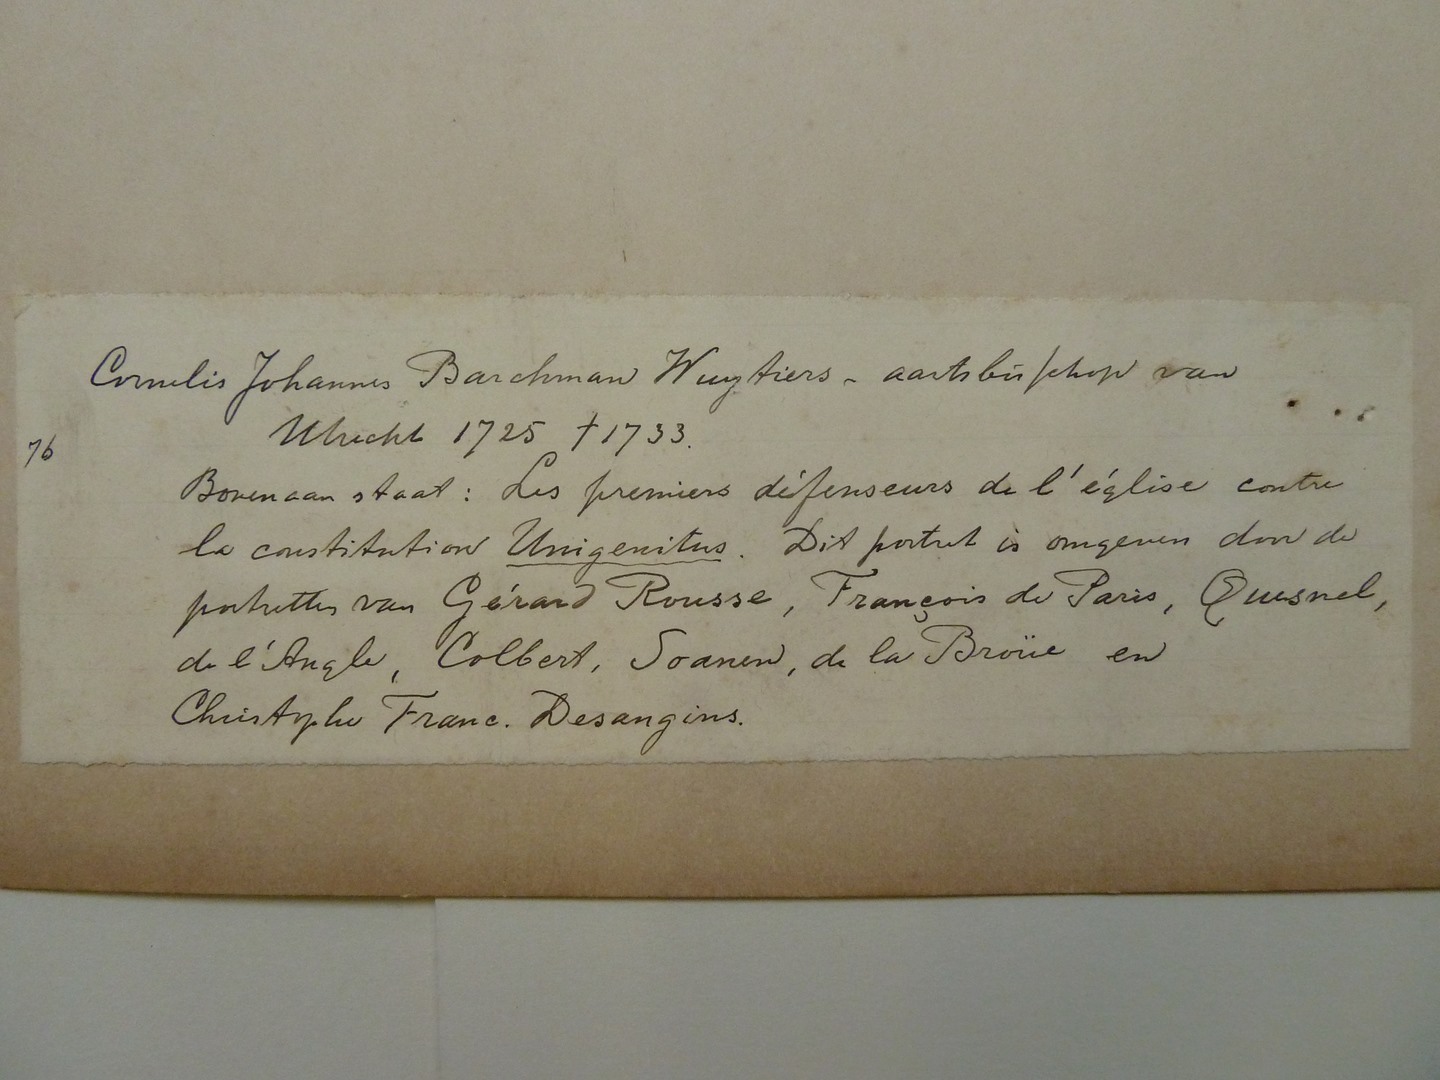 Cornelis Johannes Barchman Wuytiers - aartsbisschop van
Utrecht 1725 †1733.
76
Bovenaan staat: Les premiers défenseurs de l'église contre
la constitution Unigenitus. Dit portret is omgeven door de
portretten van Gérard Rousse, François de Paris, Quesnel,
de l'Angle, Colbert, Soanen, de la Broüe en
Christophe Franc. Desangins.